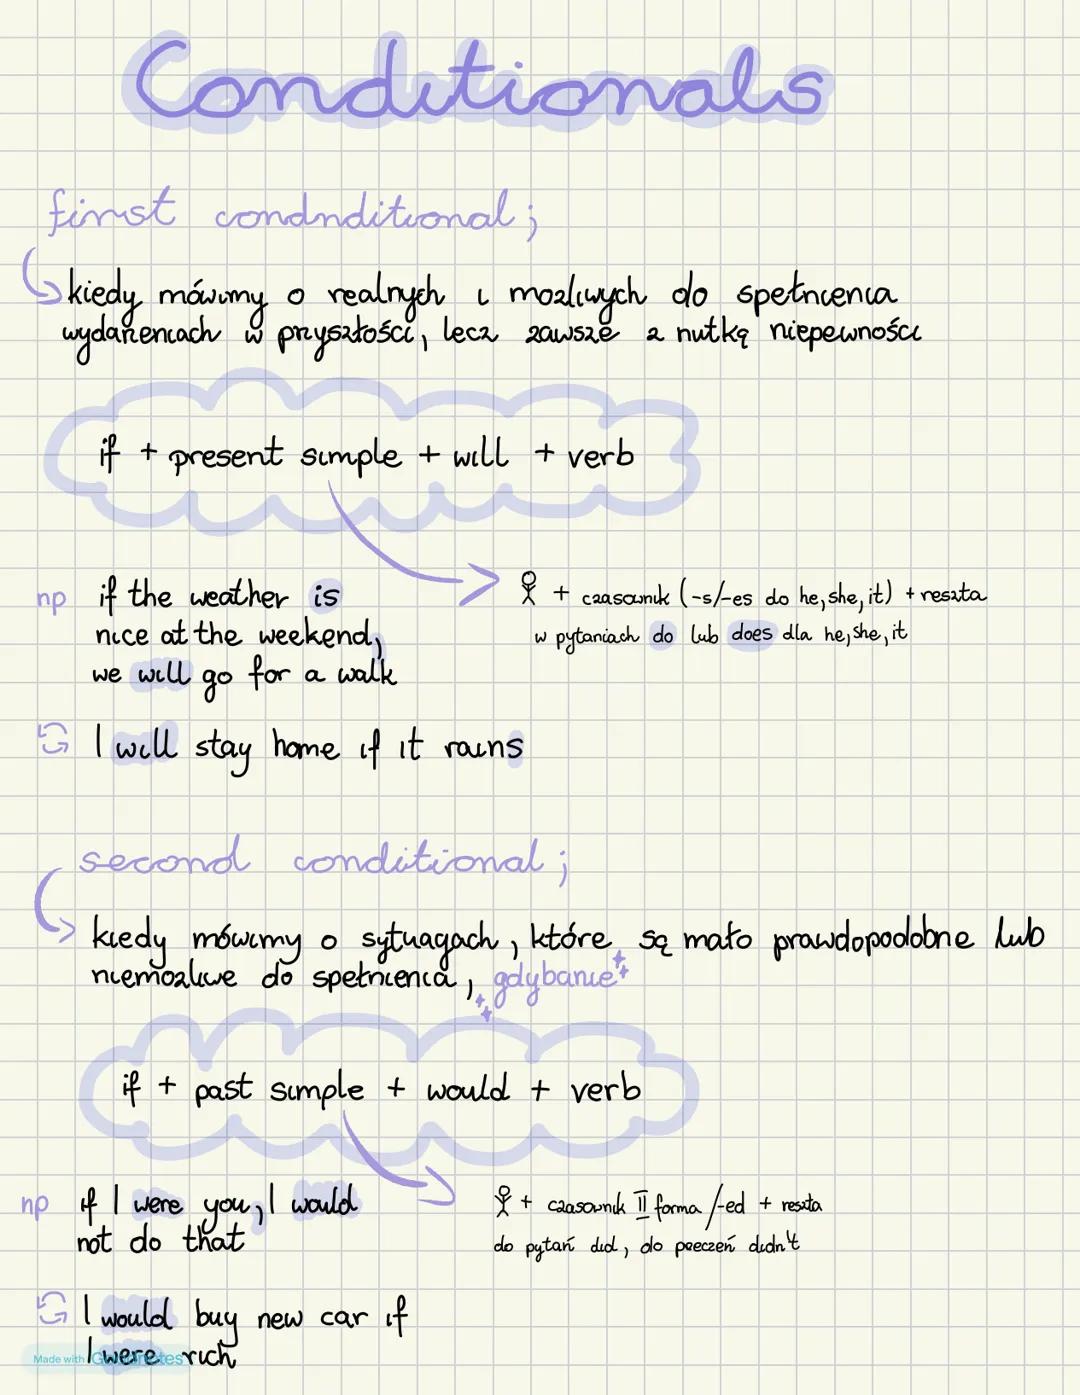 Conditionals
first condnditional;
kiedy mówimy o realnych i możliwych do spełnienia
wydarzeniach w przyszłości, lecz zawsze z nutką niepewności
if + present simple + will + verb
np if the weather is
nice at the weekend,
we will go for a walk
+ czasownik (-s/-es do he, she, it) + reszta
w pytaniach do lub does dla he, she, it
I will stay home if it rains
second conditional;
kiedy mówimy o sytuacjach, które są mało prawdopodobne lub
niemożliwe do spełnienia, gdybanie
if + past simple + would + verb
np if I were you, I would
not do that
+ czasownik II forma /-ed + reszta
do pytań did, do przeczeń didn't
I would buy new car if
I were rich
Made with Goodnotes